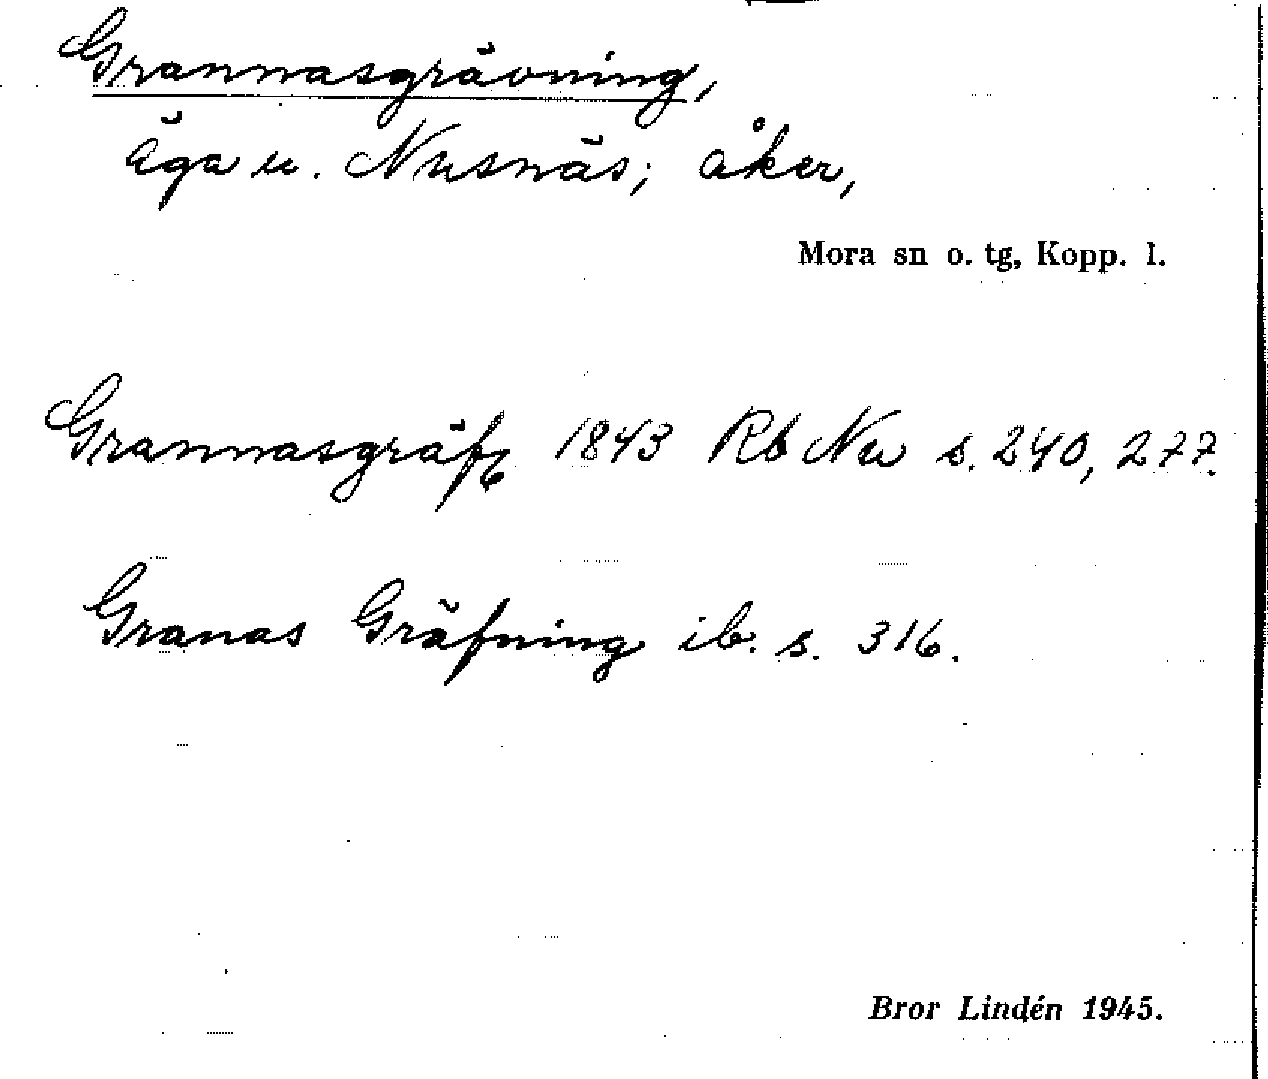 Grannasgrävning,
äga u. Nusnäs; åker,
Mora sn o. tg, Kopp. l.
Grannasgräfg 1843 Rb Nu s. 240, 277.
Granas Gräfning ib. s. 316.
Bror Lindén 1945.